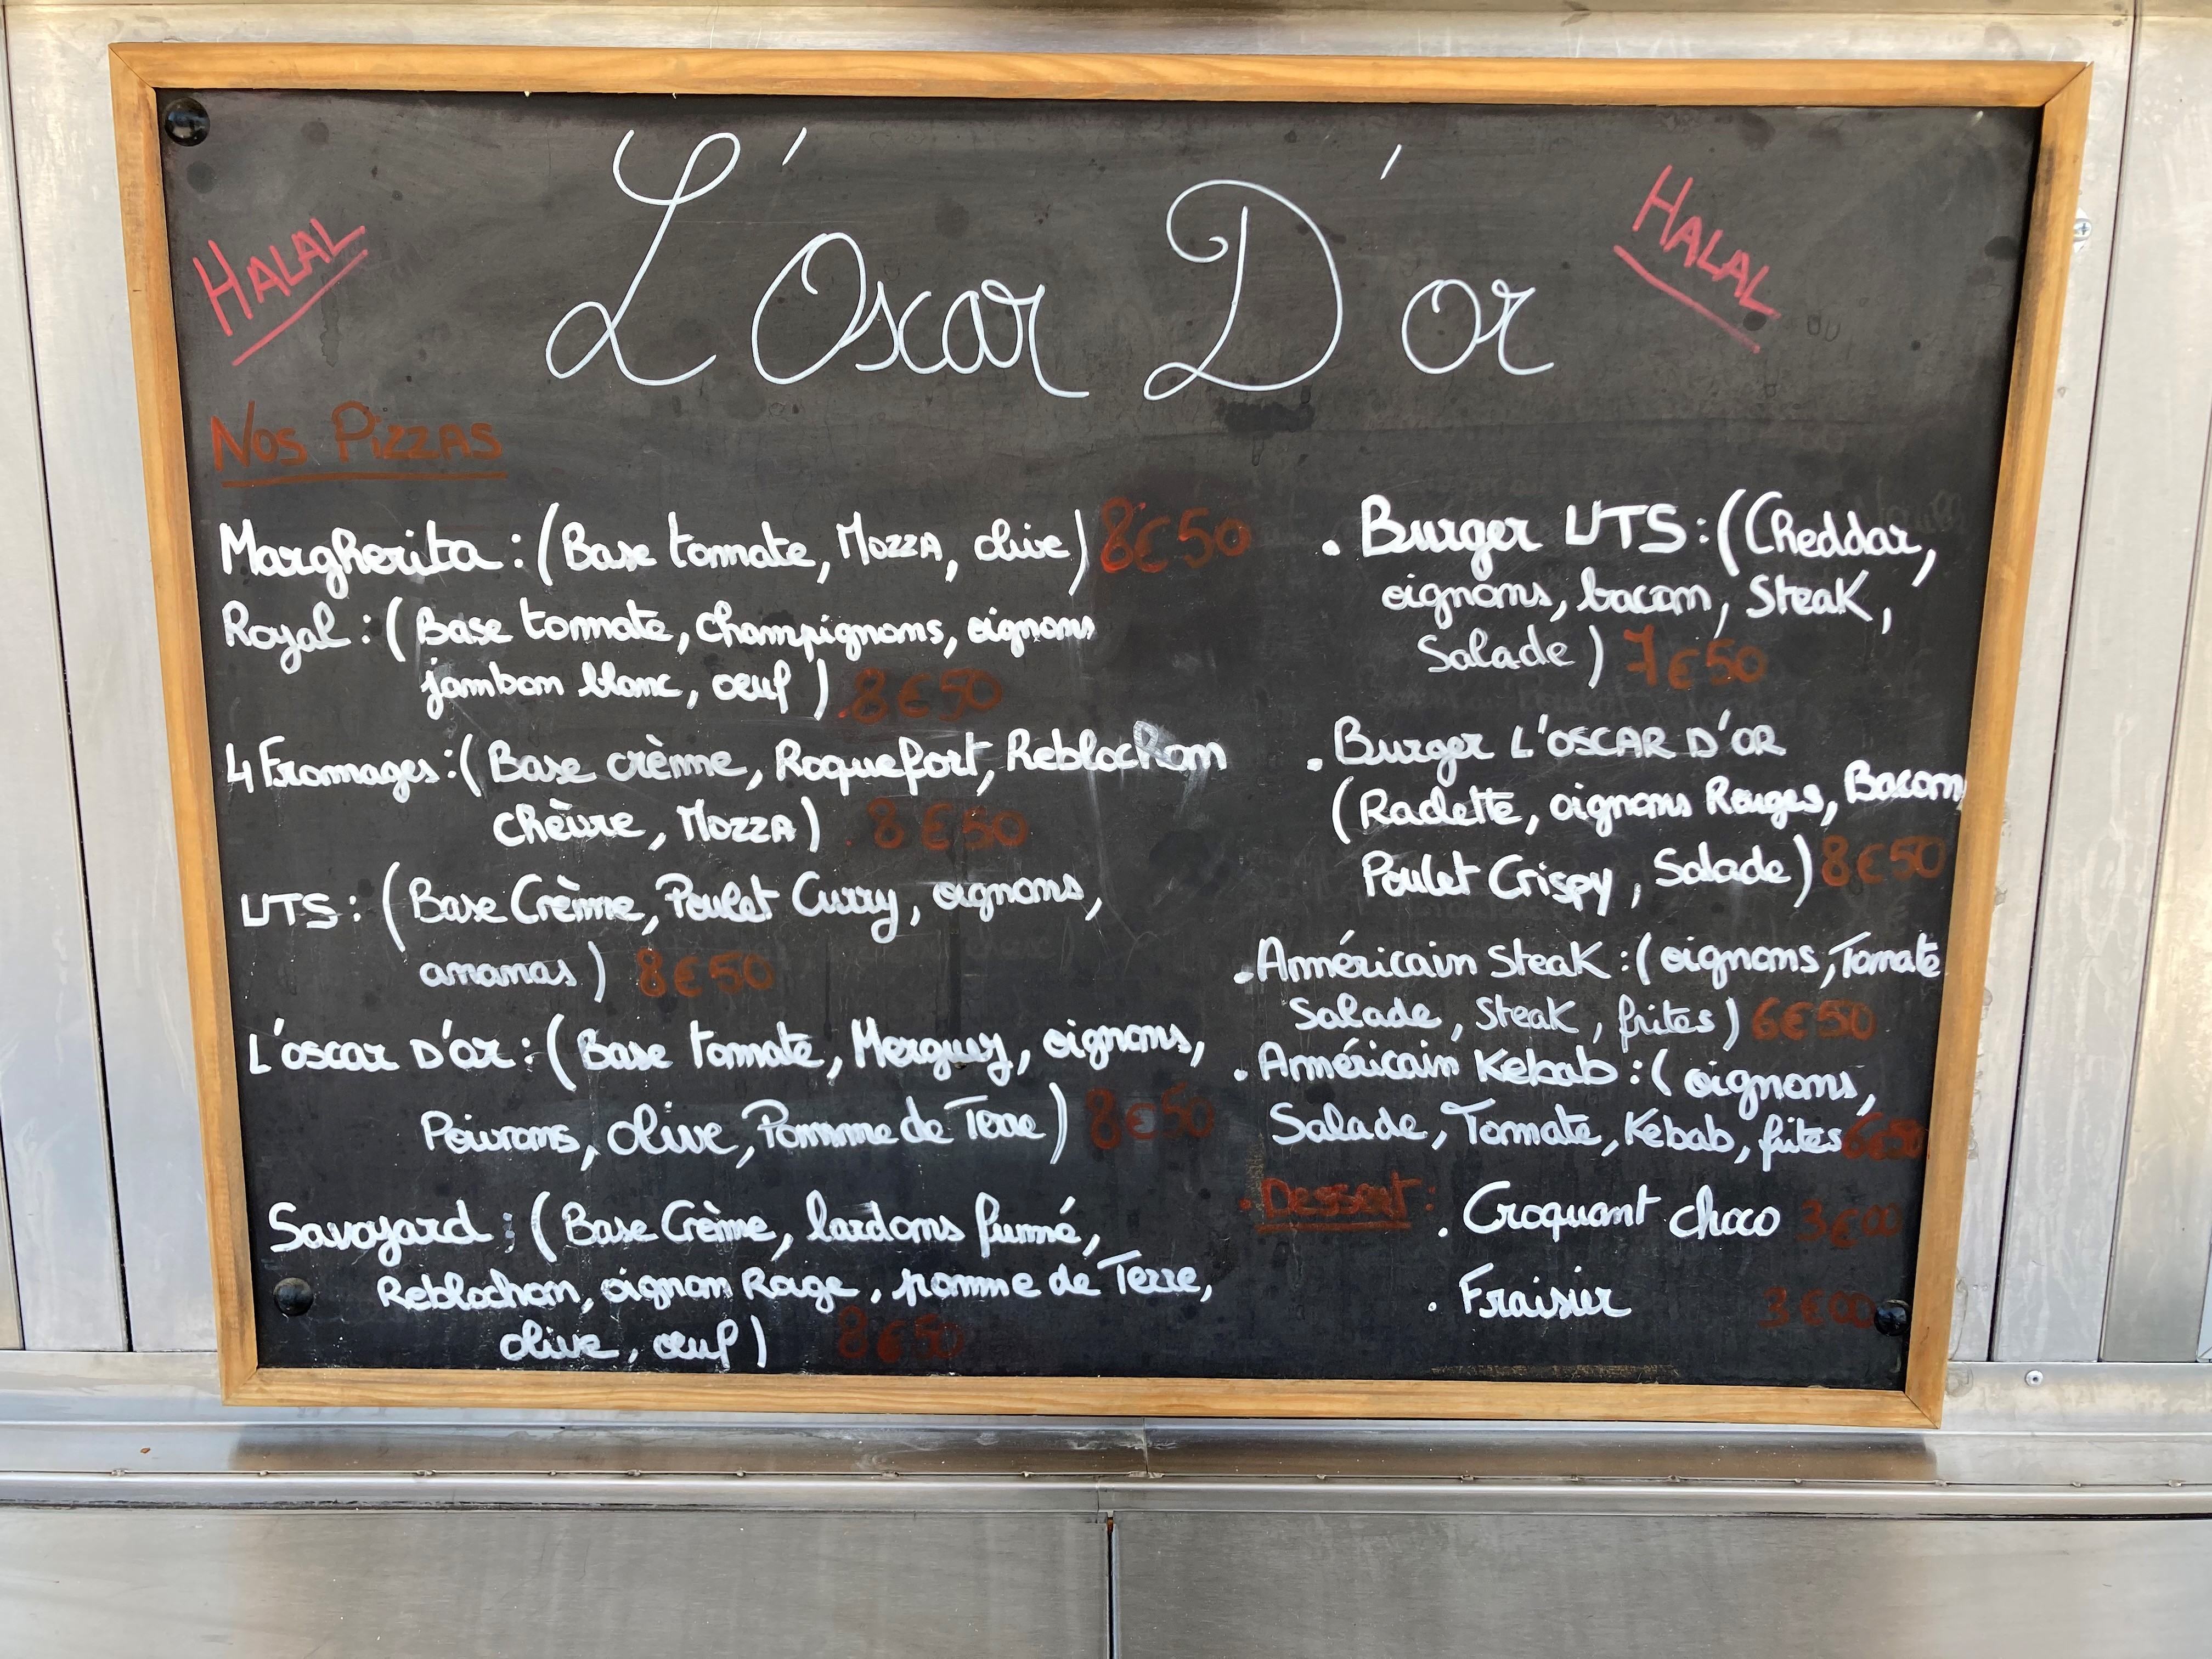 L'Oscar D'or
HALAL
HALAL
Nos Pizzas
Margherita : (Base tomate, Mozza, olive) 8€50
Royal : (Base tomate, champignons, oignons
jambon blanc, oeuf) 8€50
4 Fromages : (Base crème, Roquefort, Reblochon
chèvre, Mozza) 8€50
UTS : (Base Crème, Poulet Curry, oignons,
ananas) 8€50
L'oscar D'or : (Base tomate, Merguez, oignons,
Poivrons, olive, Pomme de Terre) 8€50
Savoyard : (Base Crème, lardons fumé,
Reblochon, oignon Rouge, pomme de Terre,
olive, oeuf) 8€50
. Burger UTS : (Cheddar,
oignons, bacon, Steak,
Salade) 7€50
. Burger L'OSCAR D'OR
(Raclette, oignons Rouges, Bacon
Poulet Crispy, Salade) 8€50
. Américain Steak : (oignons, Tomate
Salade, Steak, frites) 6€50
. Américain Kebab : (oignons,
Salade, Tomate, Kebab, frites 6€50
. Dessert : . Croquant choco 3€00
. Fraisier 3€00